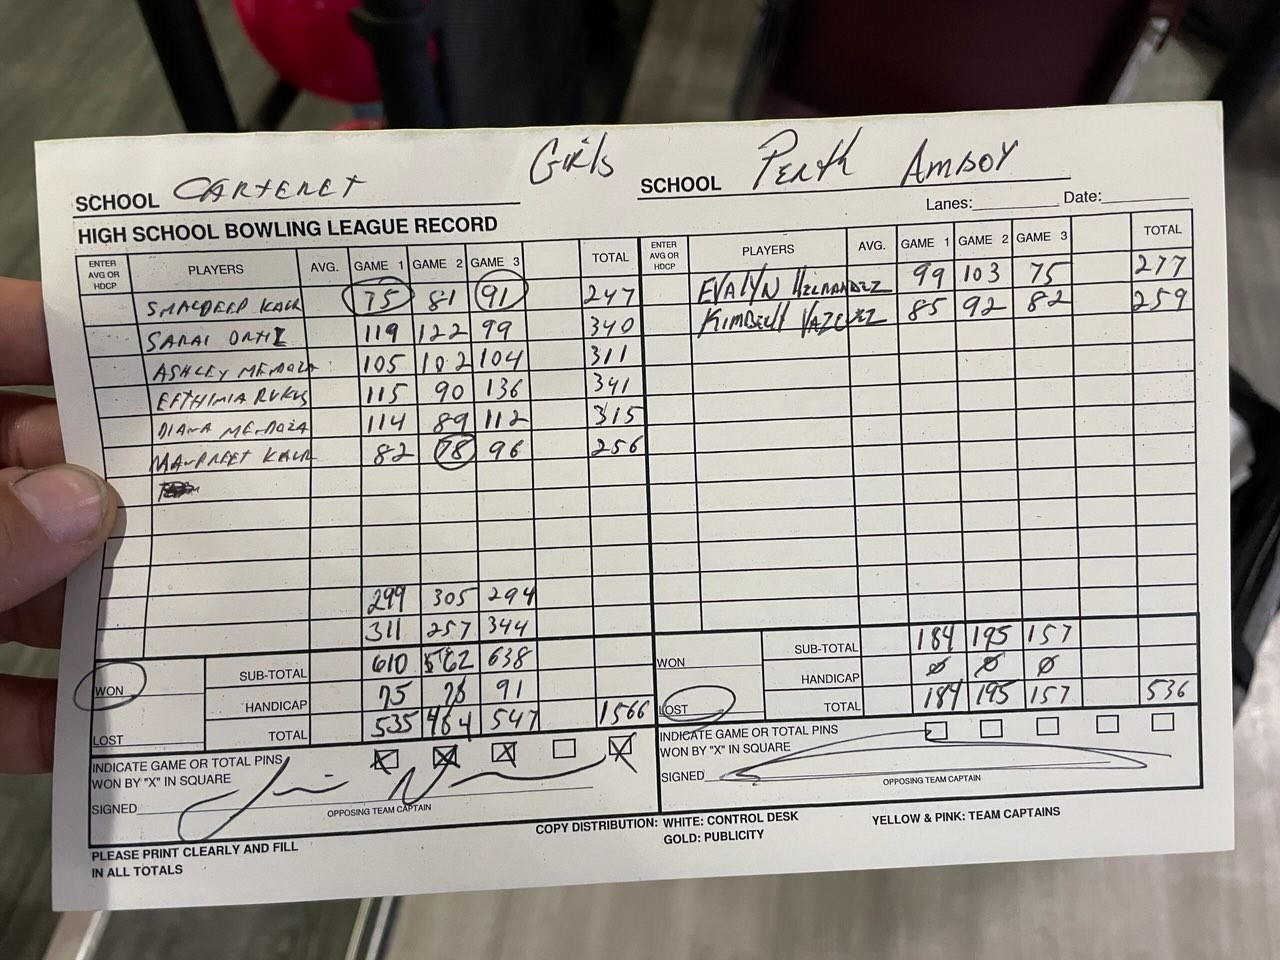 Girls
SCHOOL CARTERET
SCHOOL Perth Amboy
HIGH SCHOOL BOWLING LEAGUE RECORD
Lanes: Date:
ENTER AVG OR HDCP PLAYERS AVG. GAME 1 GAME 2 GAME 3 TOTAL
KAUR 75 81 91 247
SARAI ORTIZ 119 122 99 340
ASHLEY MENDOZA 105 102 104 311
EFTHIMIA 115 90 136 341
DIANA MENDOZA 114 89 112 315
MANPREET KAUR 82 78 96 256
299 305 294
311 257 344
SUB-TOTAL 610 562 638
WON
HANDICAP 75 78 91
LOST
TOTAL 535 484 547 1566
INDICATE GAME OR TOTAL PINS
WON BY "X" IN SQUARE
SIGNED
OPPOSING TEAM CAPTAIN
ENTER AVG OR HDCP PLAYERS AVG. GAME 1 GAME 2 GAME 3 TOTAL
EVALYN HERNANDEZ 99 103 75 277
KIMBELL VAZQUEZ 85 92 82 259
SUB-TOTAL 184 195 157
WON
HANDICAP 0 0 0
LOST
TOTAL 184 195 157 536
INDICATE GAME OR TOTAL PINS
WON BY "X" IN SQUARE
SIGNED
OPPOSING TEAM CAPTAIN
PLEASE PRINT CLEARLY AND FILL
IN ALL TOTALS
COPY DISTRIBUTION: WHITE: CONTROL DESK YELLOW & PINK: TEAM CAPTAINS
GOLD: PUBLICITY